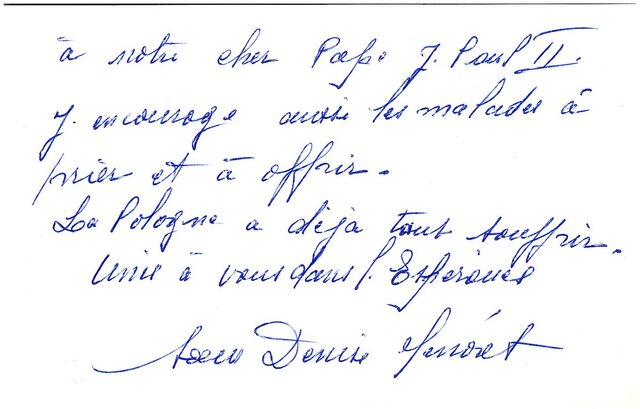 à notre cher Pape J. Paul II.
J. encourage aussi les malades à
prier et à offrir.
La Pologne a déjà tant souffrir.
Unie à vous dans l'Espérance
Soeur Denise